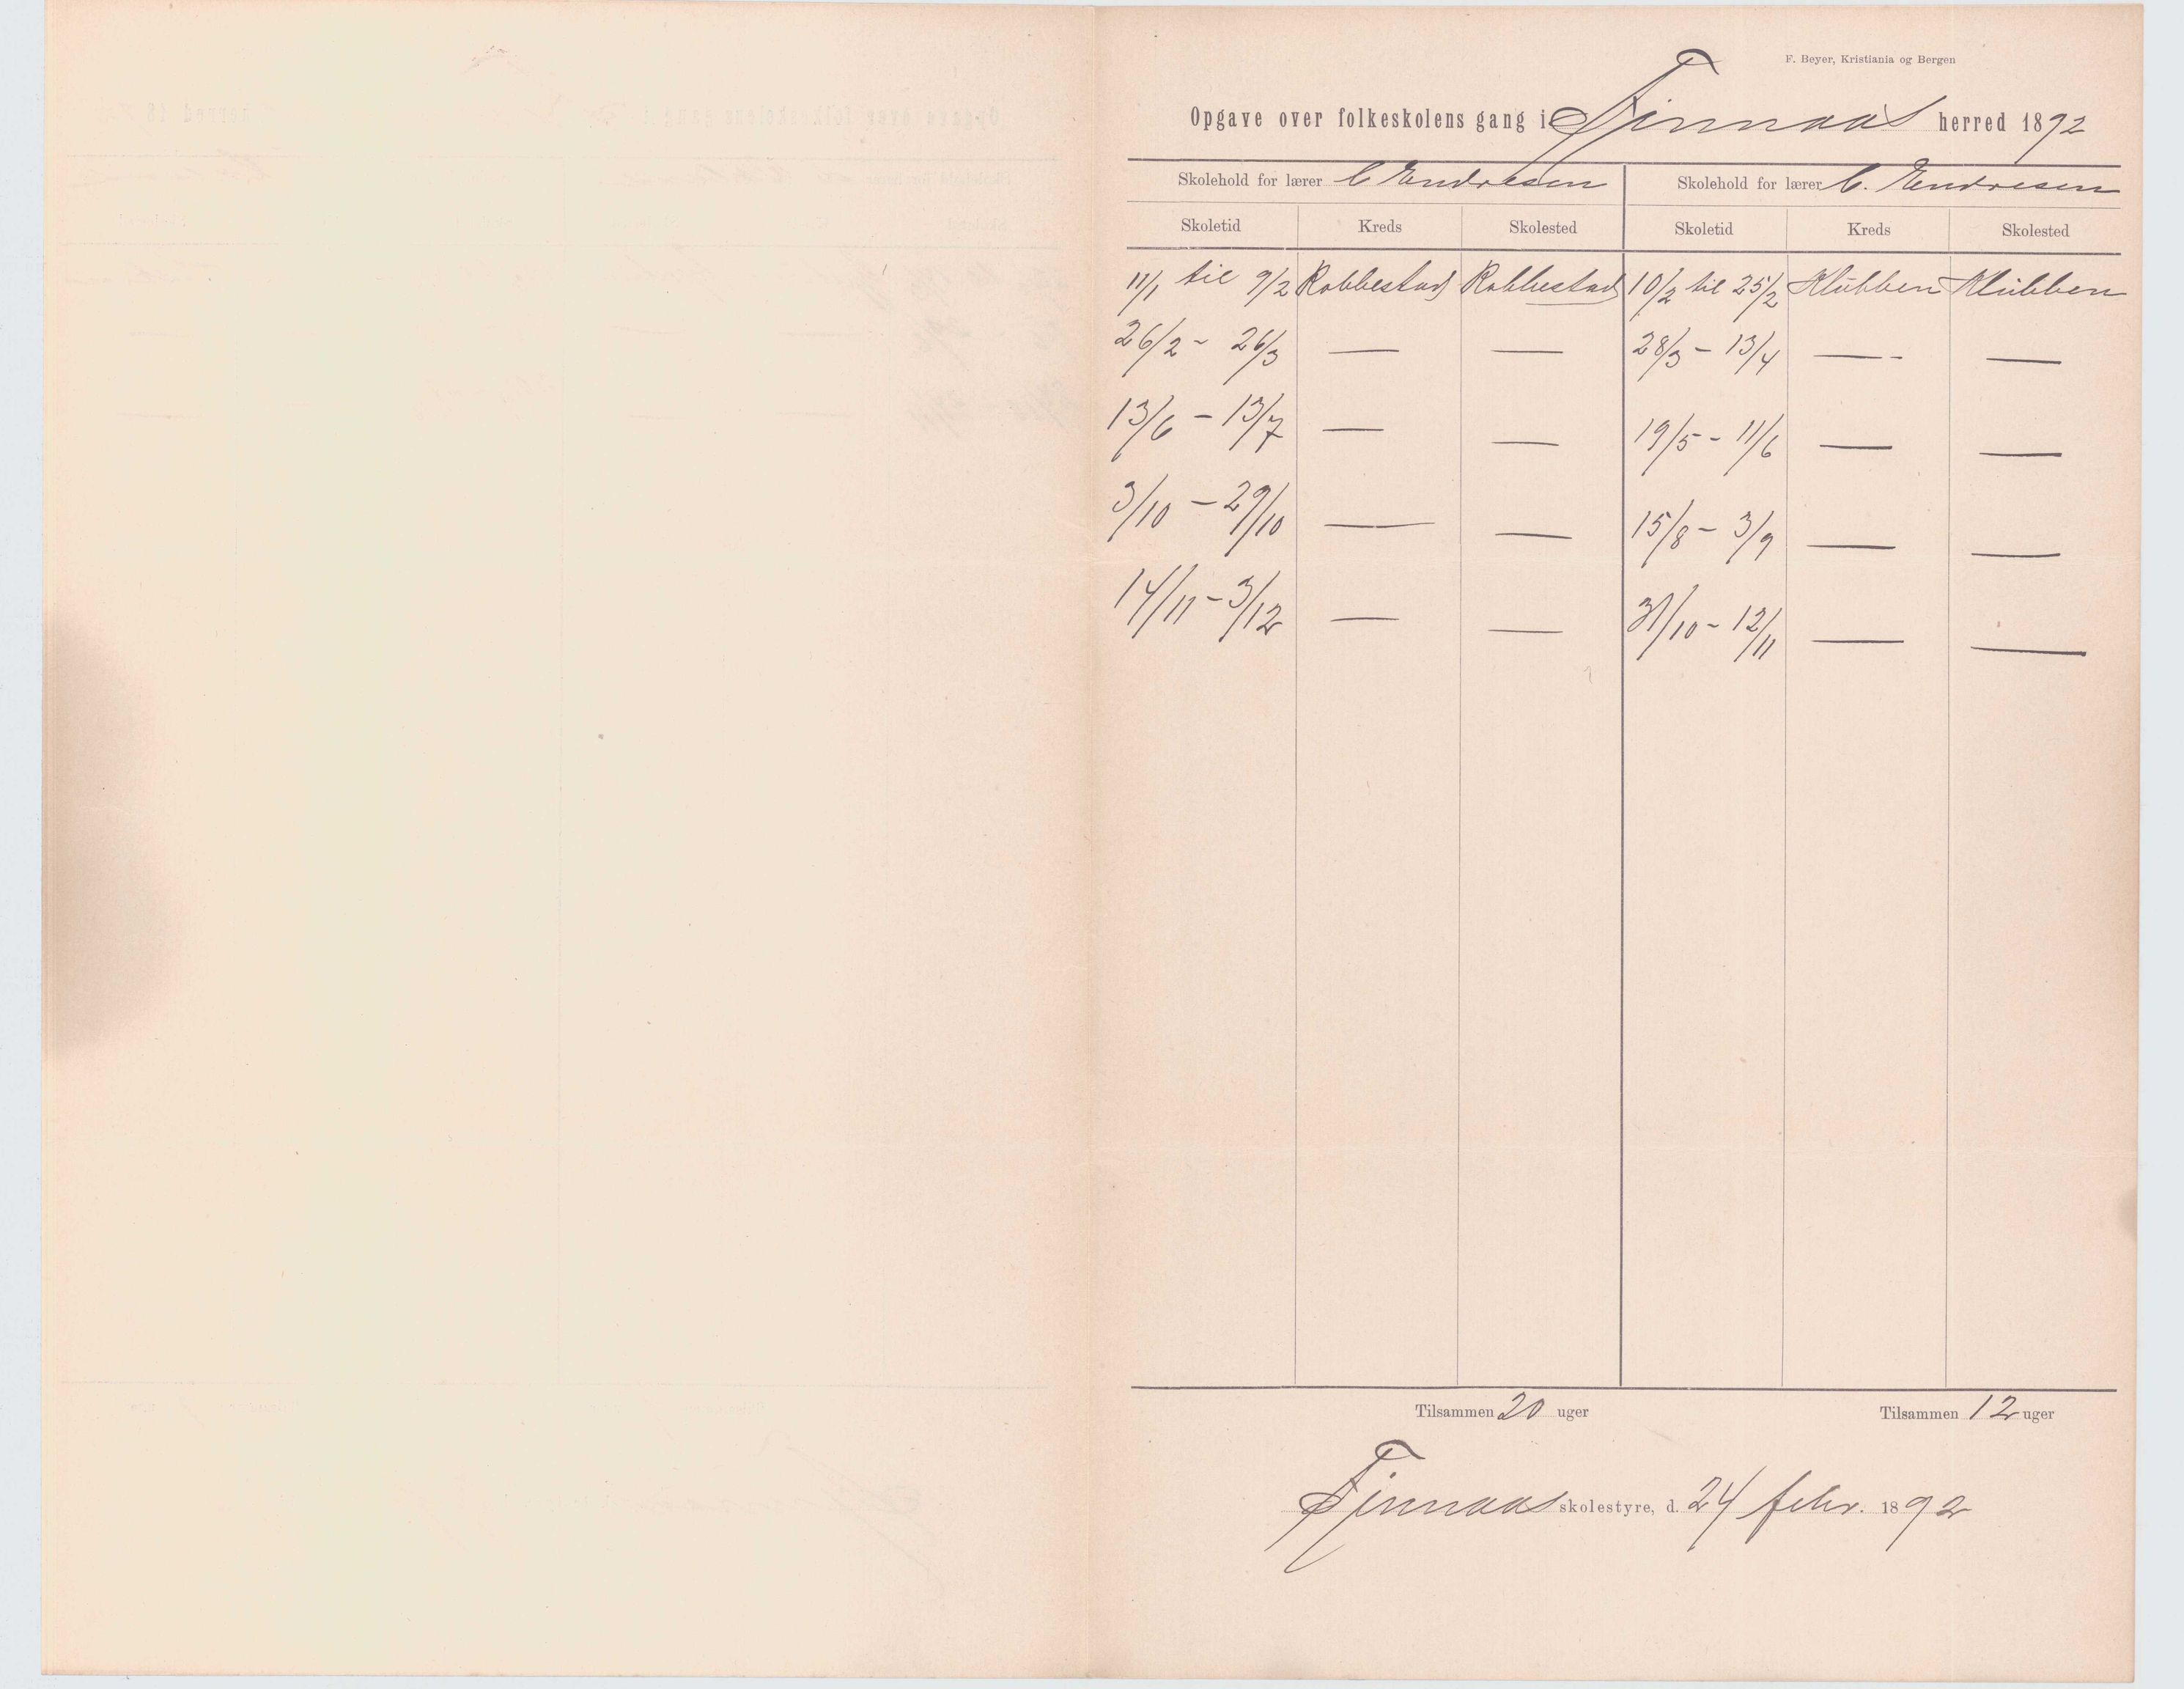 F. Beyer, Kristiania og Bergen
Opgave over folkeskolens gang i Finnaas herred 1892
Skolehold for lærer C Endresen Skolehold for lærer C. Endresen
Skoletid Kreds Skolested Skoletid Kreds Skolested
11/1 til 9/2 Robbestad Robbestad 10/2 til 25/2 Klubben Klubben
26/2 - 26/3 — — 28/3 - 13/4 — —
13/6 - 13/7 — — 19/5 - 11/6 — —
3/10 - 29/10 — — 15/8 - 3/9 — —
14/11 - 3/12 — — 31/10 - 12/11 — —
Tilsammen 20 uger Tilsammen 12 uger
Finnaas skolestyre, d. 24 febr. 1892